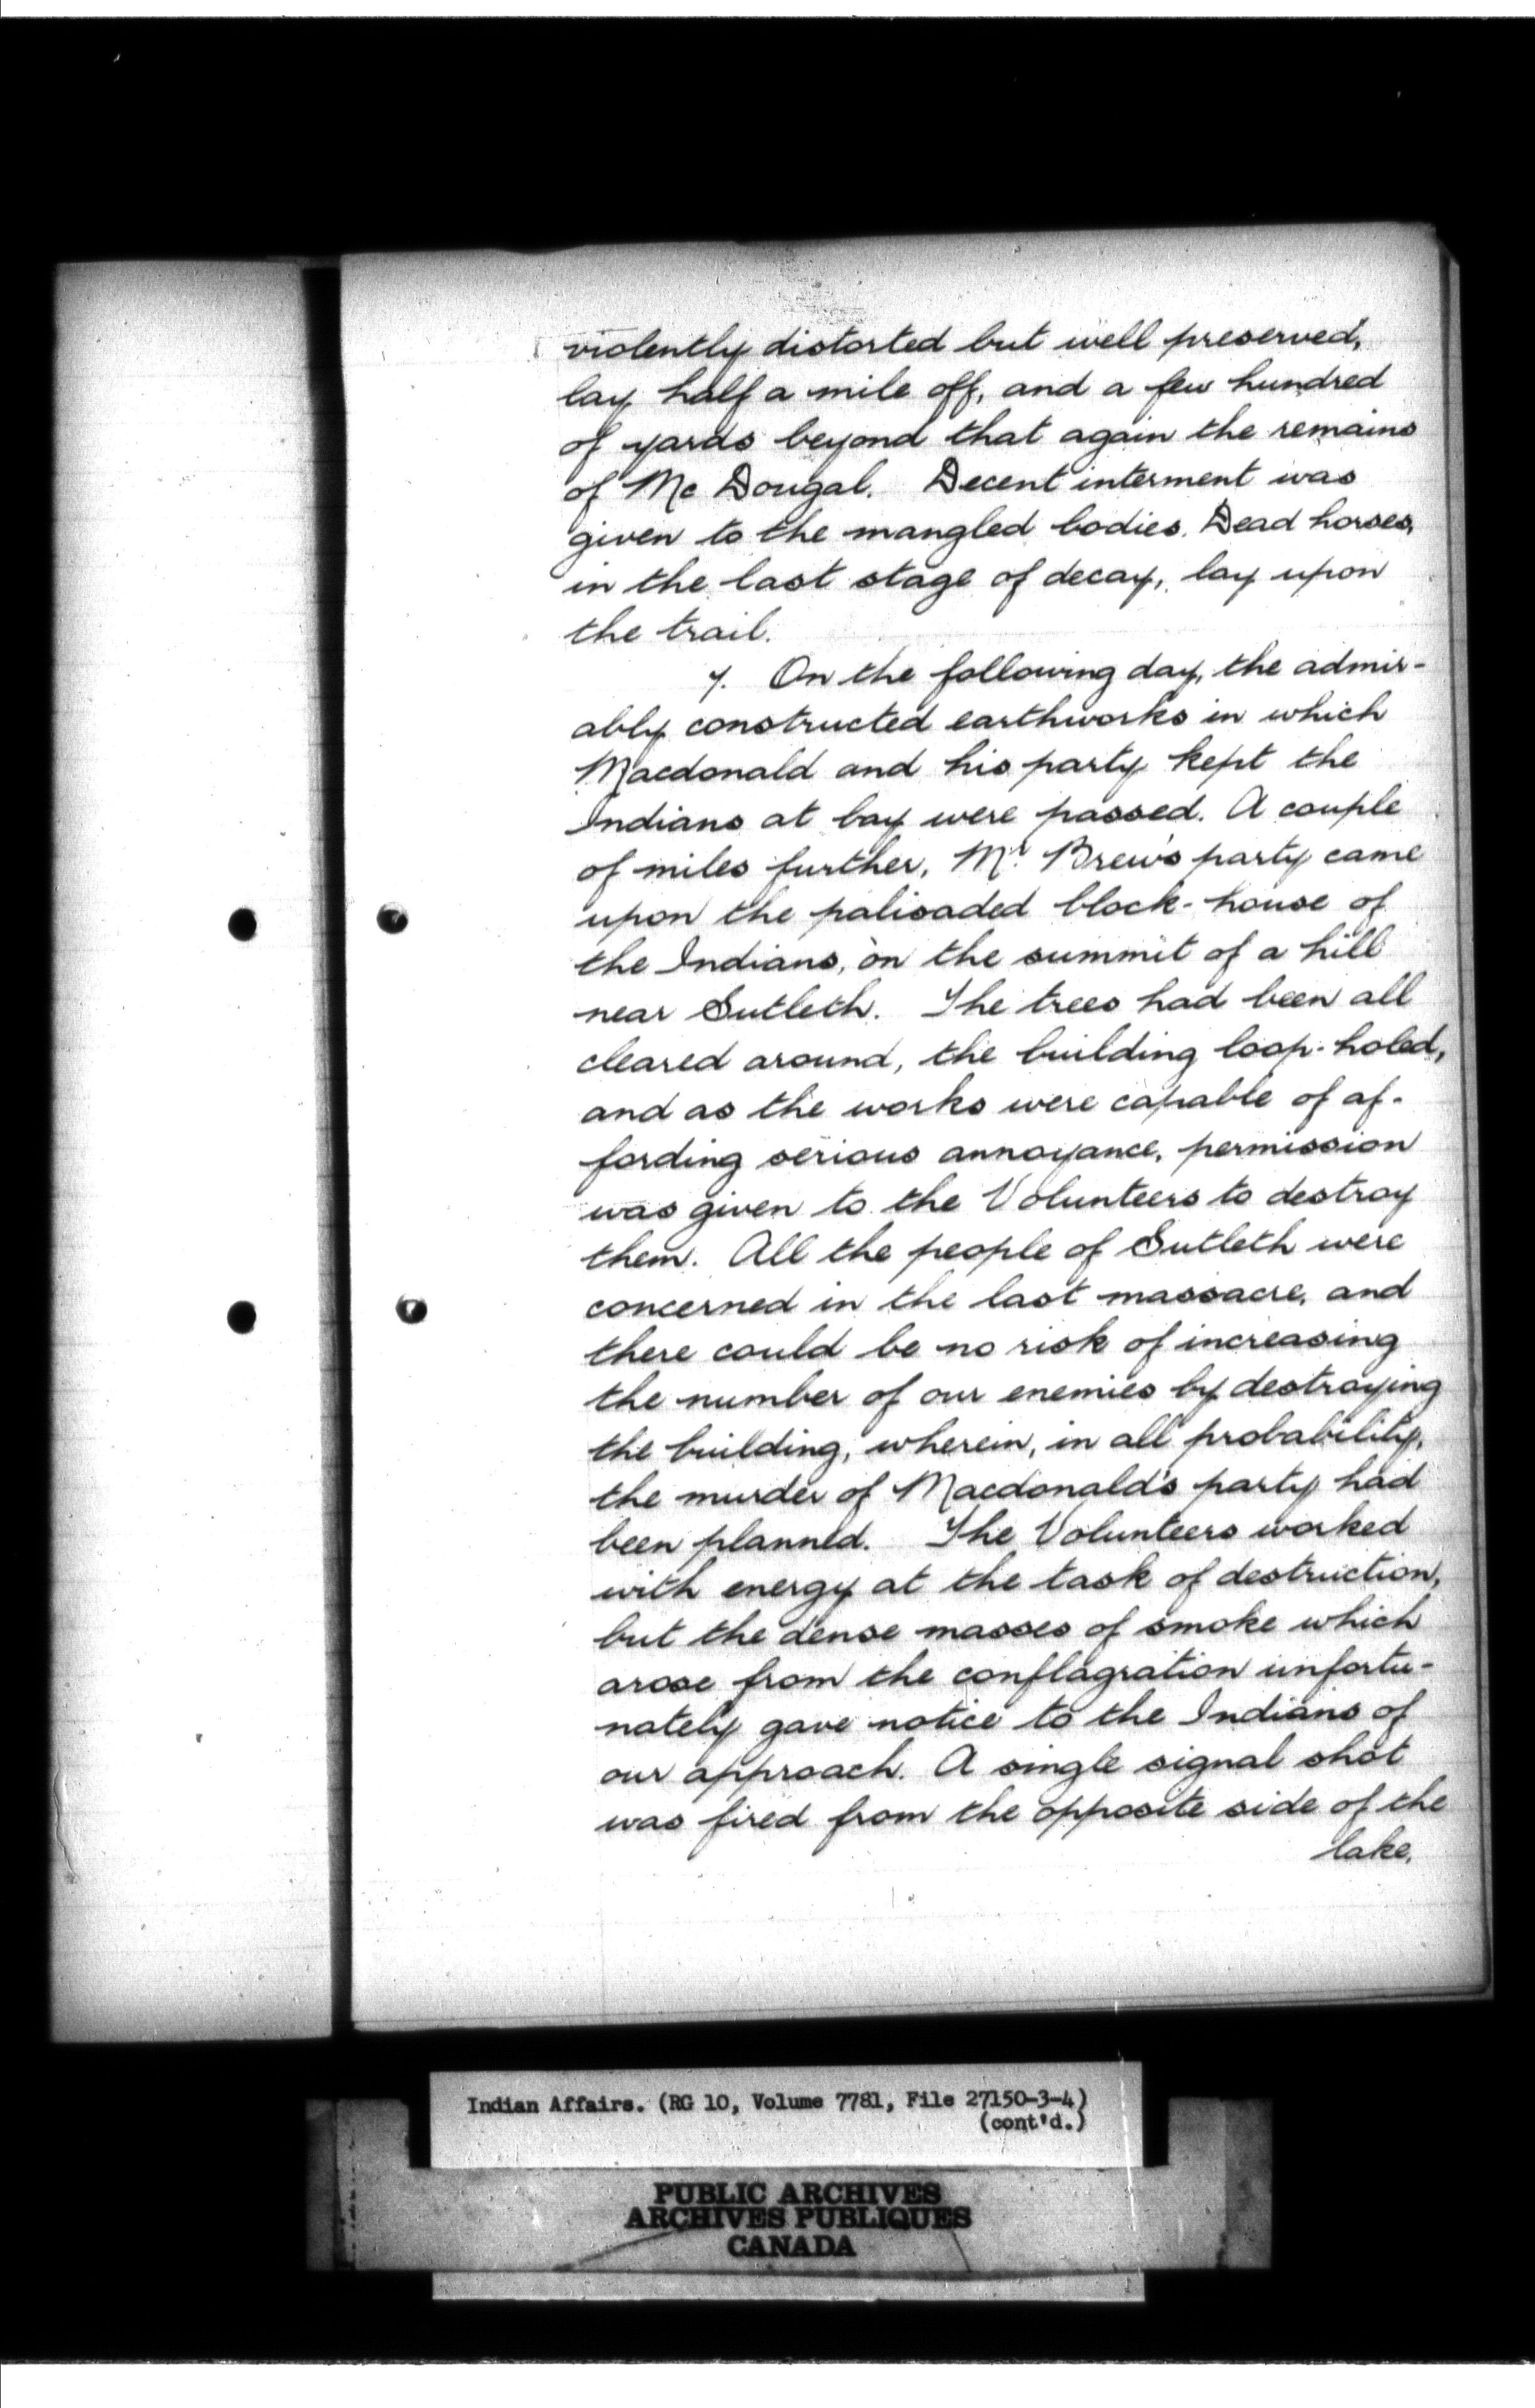 violently distorted but well preserved,
lay half a mile off, and a few hundred
of yards beyond that again the remains
of Mc Dougal. Decent interment was
given to the mangled bodies. Dead horses,
in the last stage of decay, lay upon
the trail.
7. On the following day, the admir-
ably constructed earthworks in which
Macdonald and his party kept the
Indians at bay were passed. A couple
of miles further, Mr. Brew's party came
upon the palisaded block-house of
the Indians, on the summit of a hill
near Sutleth. The trees had been all
cleared around, the building loop-holed,
and as the works were capable of af-
fording serious annoyance, permission
was given to the Volunteers to destroy
them. All the people of Sutleth were
concerned in the last massacre, and
there could be no risk of increasing
the number of our enemies by destroying
the building, wherein, in all probability,
the murder of Macdonald's party had
been planned. The Volunteers worked
with energy at the task of destruction,
but the dense masses of smoke which
arose from the conflagration unfortu-
nately gave notice to the Indians of
our approach. A single signal shot
was fired from the opposite side of the
lake.
Indian Affairs. (RG 10, Volume 7781, File 27150-3-4)
(cont'd.)
PUBLIC ARCHIVES
ARCHIVES PUBLIQUES
CANADA